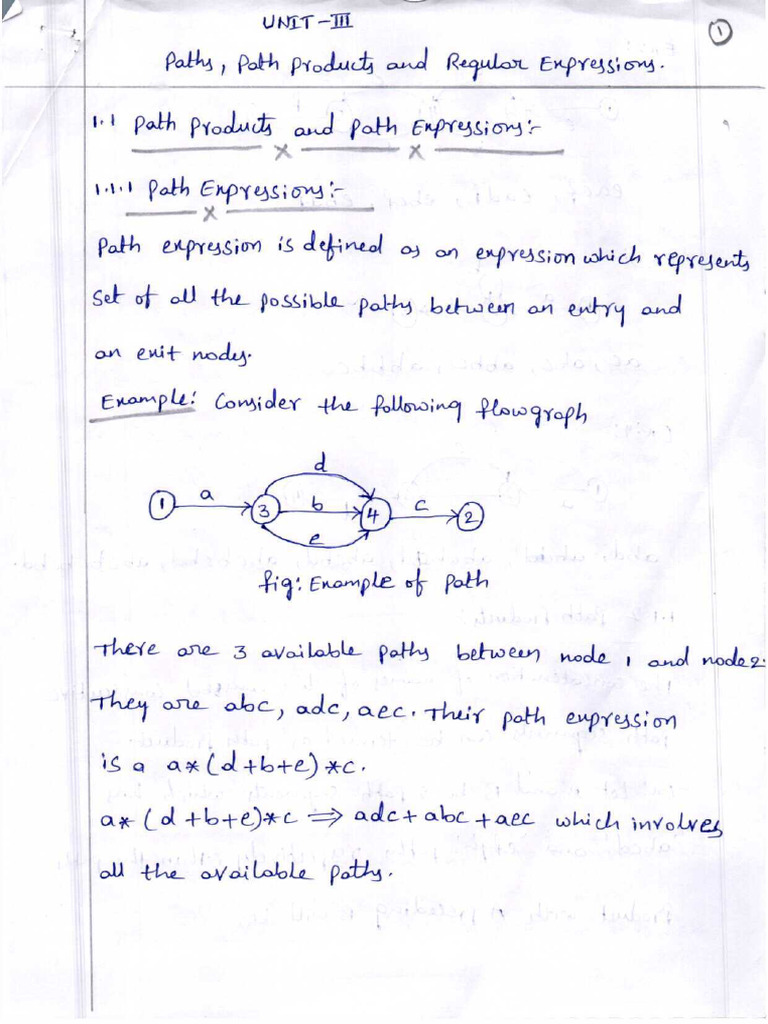 UNIT-III
1
Paths, Path Products and Regular Expressions.
1.1 Path Products and Path Expressions:-
1.1.1 Path Expressions:-
Path expression is defined as an expression which represents
set of all the possible paths between an entry and
an exit nodes.
Example: Consider the following flowgraph
d
1 a 3 b 4 c 2
e
fig: Example of Path
There are 3 available paths between node 1 and node 2.
They are abc, adc, aec. Their path expression
is a a*(d+b+e)*c.
a*(d+b+e)*c ⇒ adc+abc+aec which involves
all the available paths.